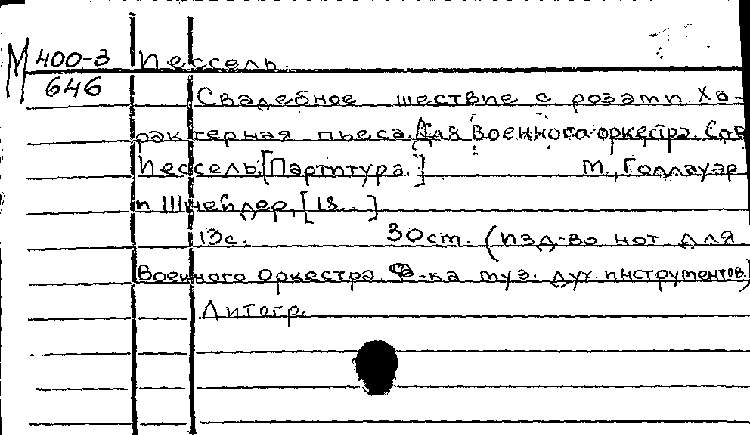 М 400-3 Иессель
646
Свадебное шествие с розами Ха-
рактерная пьеса. Для военного оркестра. Соч
Иессель. [Партитура.] М., Голлауэр
и Шнейдер, [18..]
13с. 30см. (Изд-во нот для
Военного Оркестра. Ф-ка муз. дух инструментов)
Литогр.